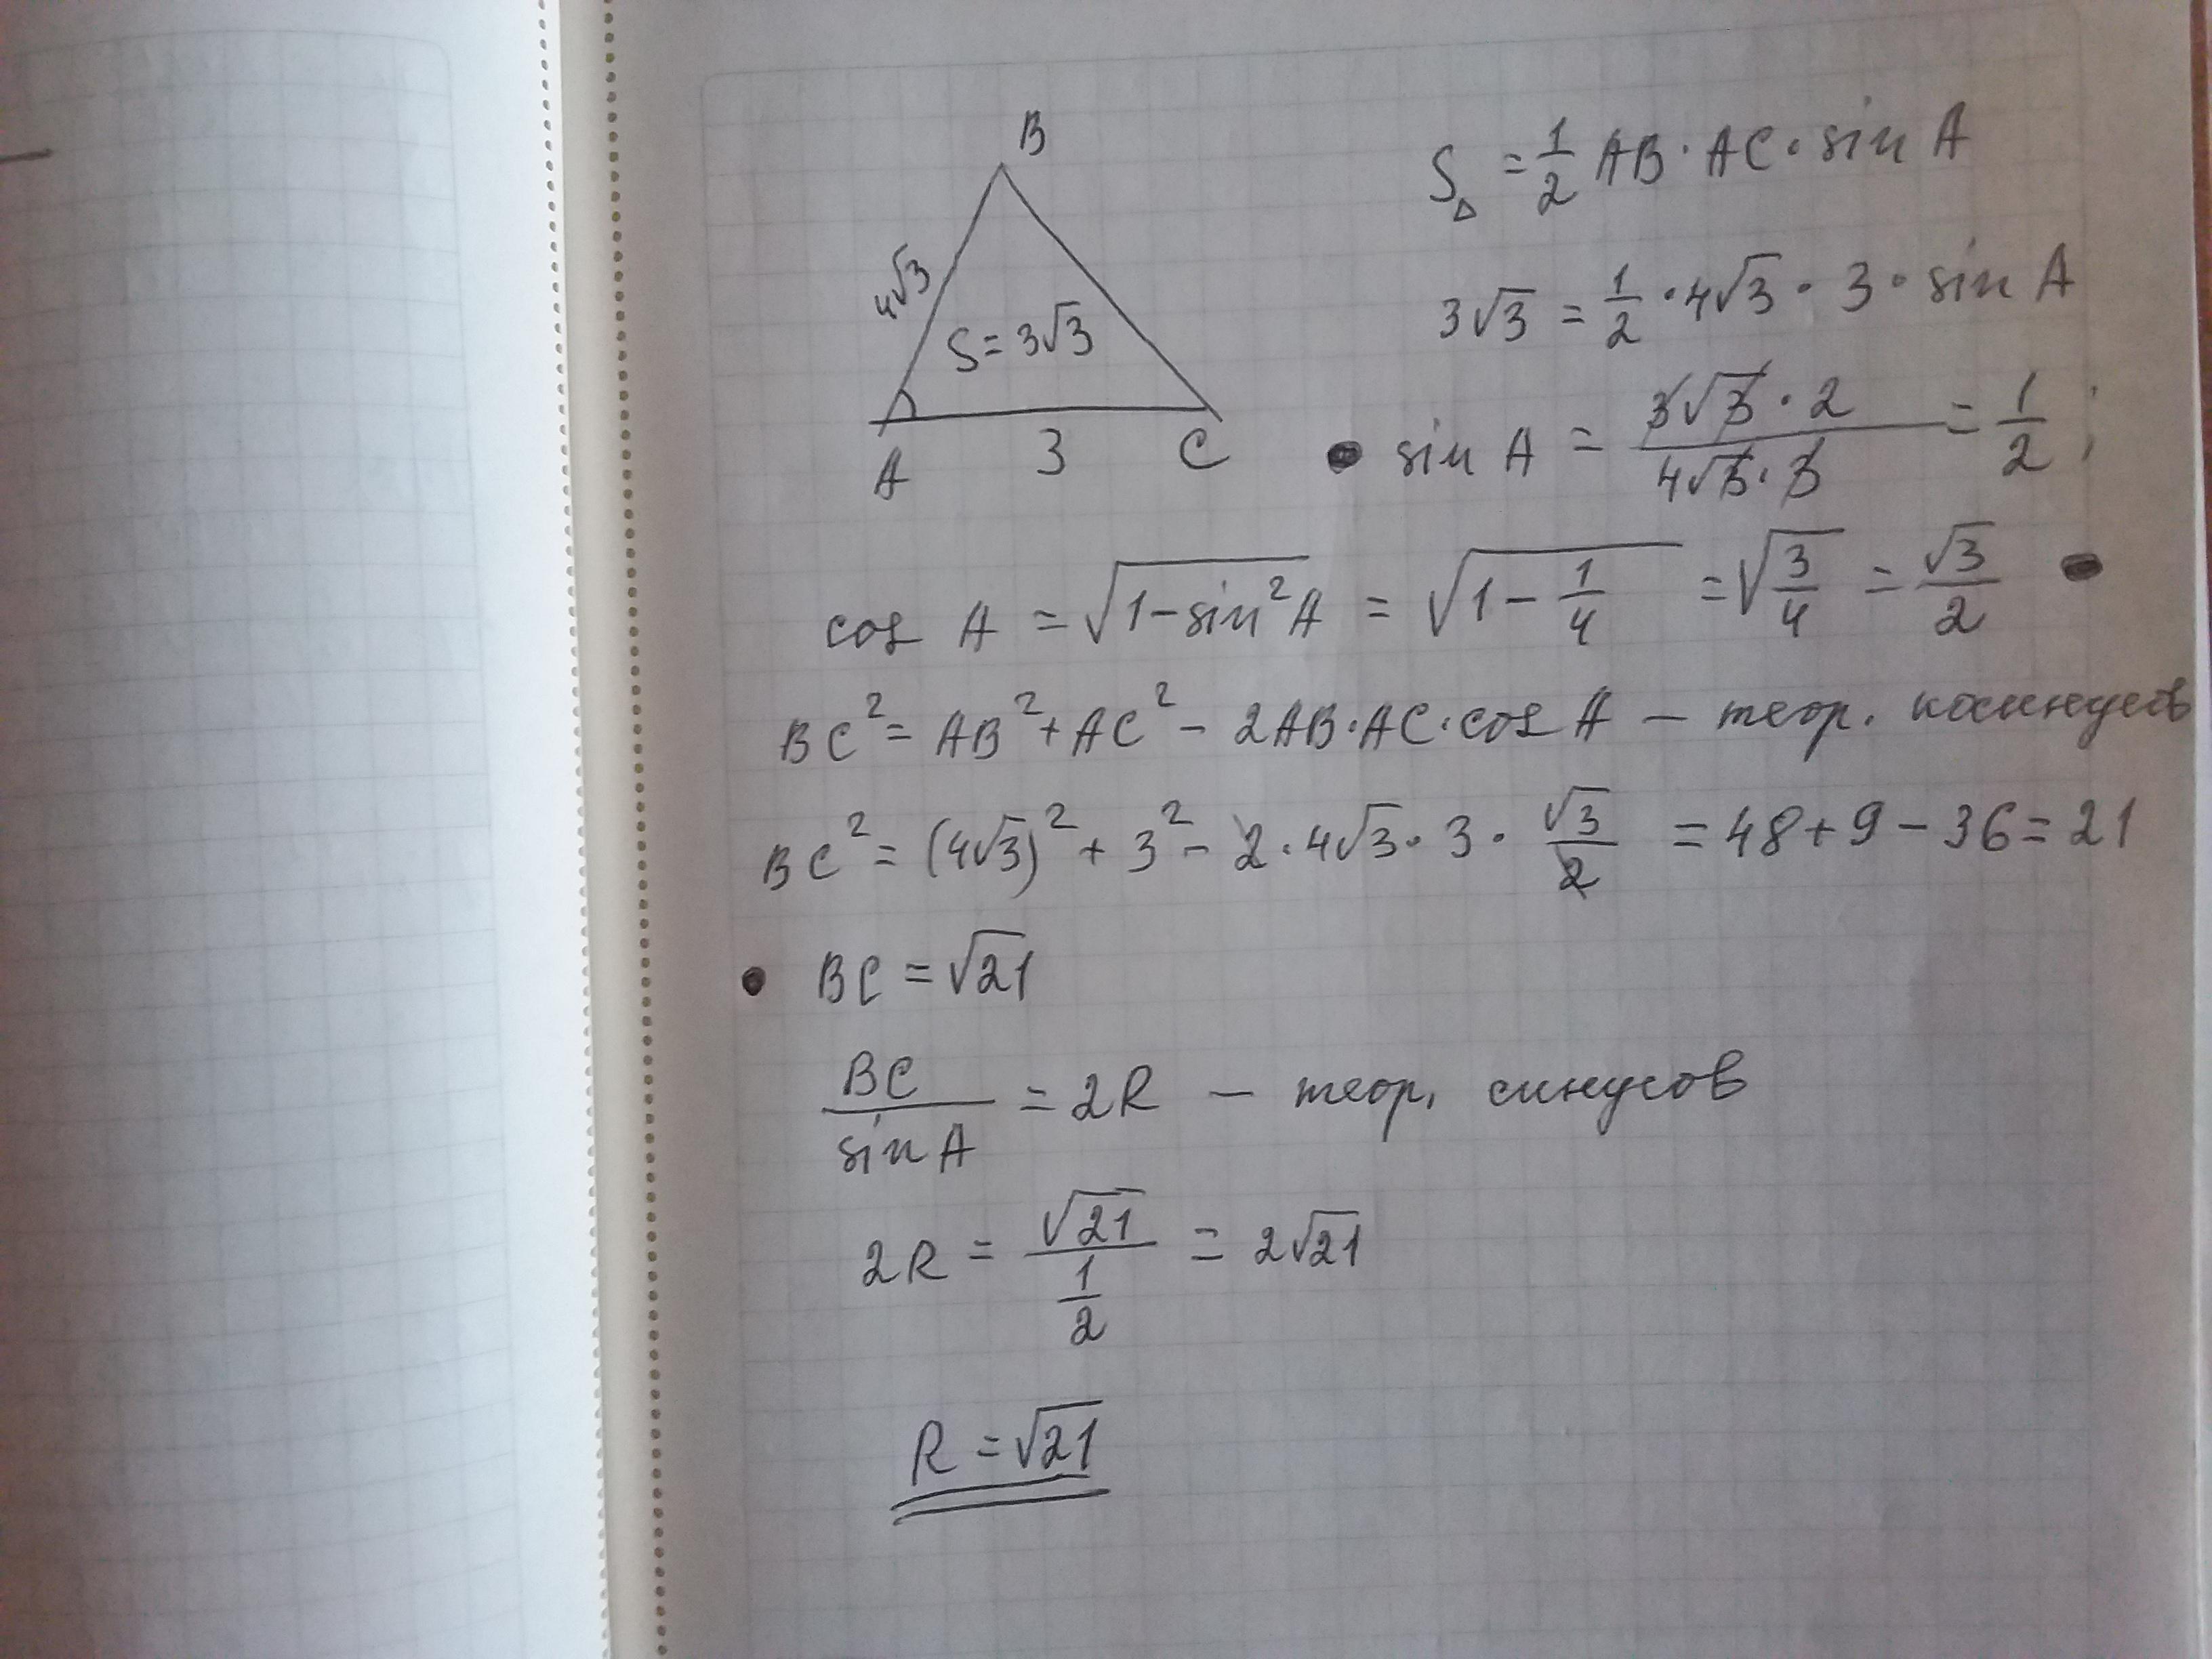 B
4√3
S = 3√3
A
3
C
S△ = 1/2 AB · AC · sin A
3√3 = 1/2 · 4√3 · 3 · sin A
sin A = 3√3 · 2 / 4√3 · 3 = 1/2 ;
cos A = √(1 - sin² A) = √(1 - 1/4) = √(3/4) = √3/2
BC² = AB² + AC² - 2AB · AC · cos A — теор. косинусов
BC² = (4√3)² + 3² - 2 · 4√3 · 3 · √3/2 = 48 + 9 - 36 = 21
• BC = √21
BC / sin A = 2R — теор. синусов
2R = √21 / 1/2 = 2√21
R = √21